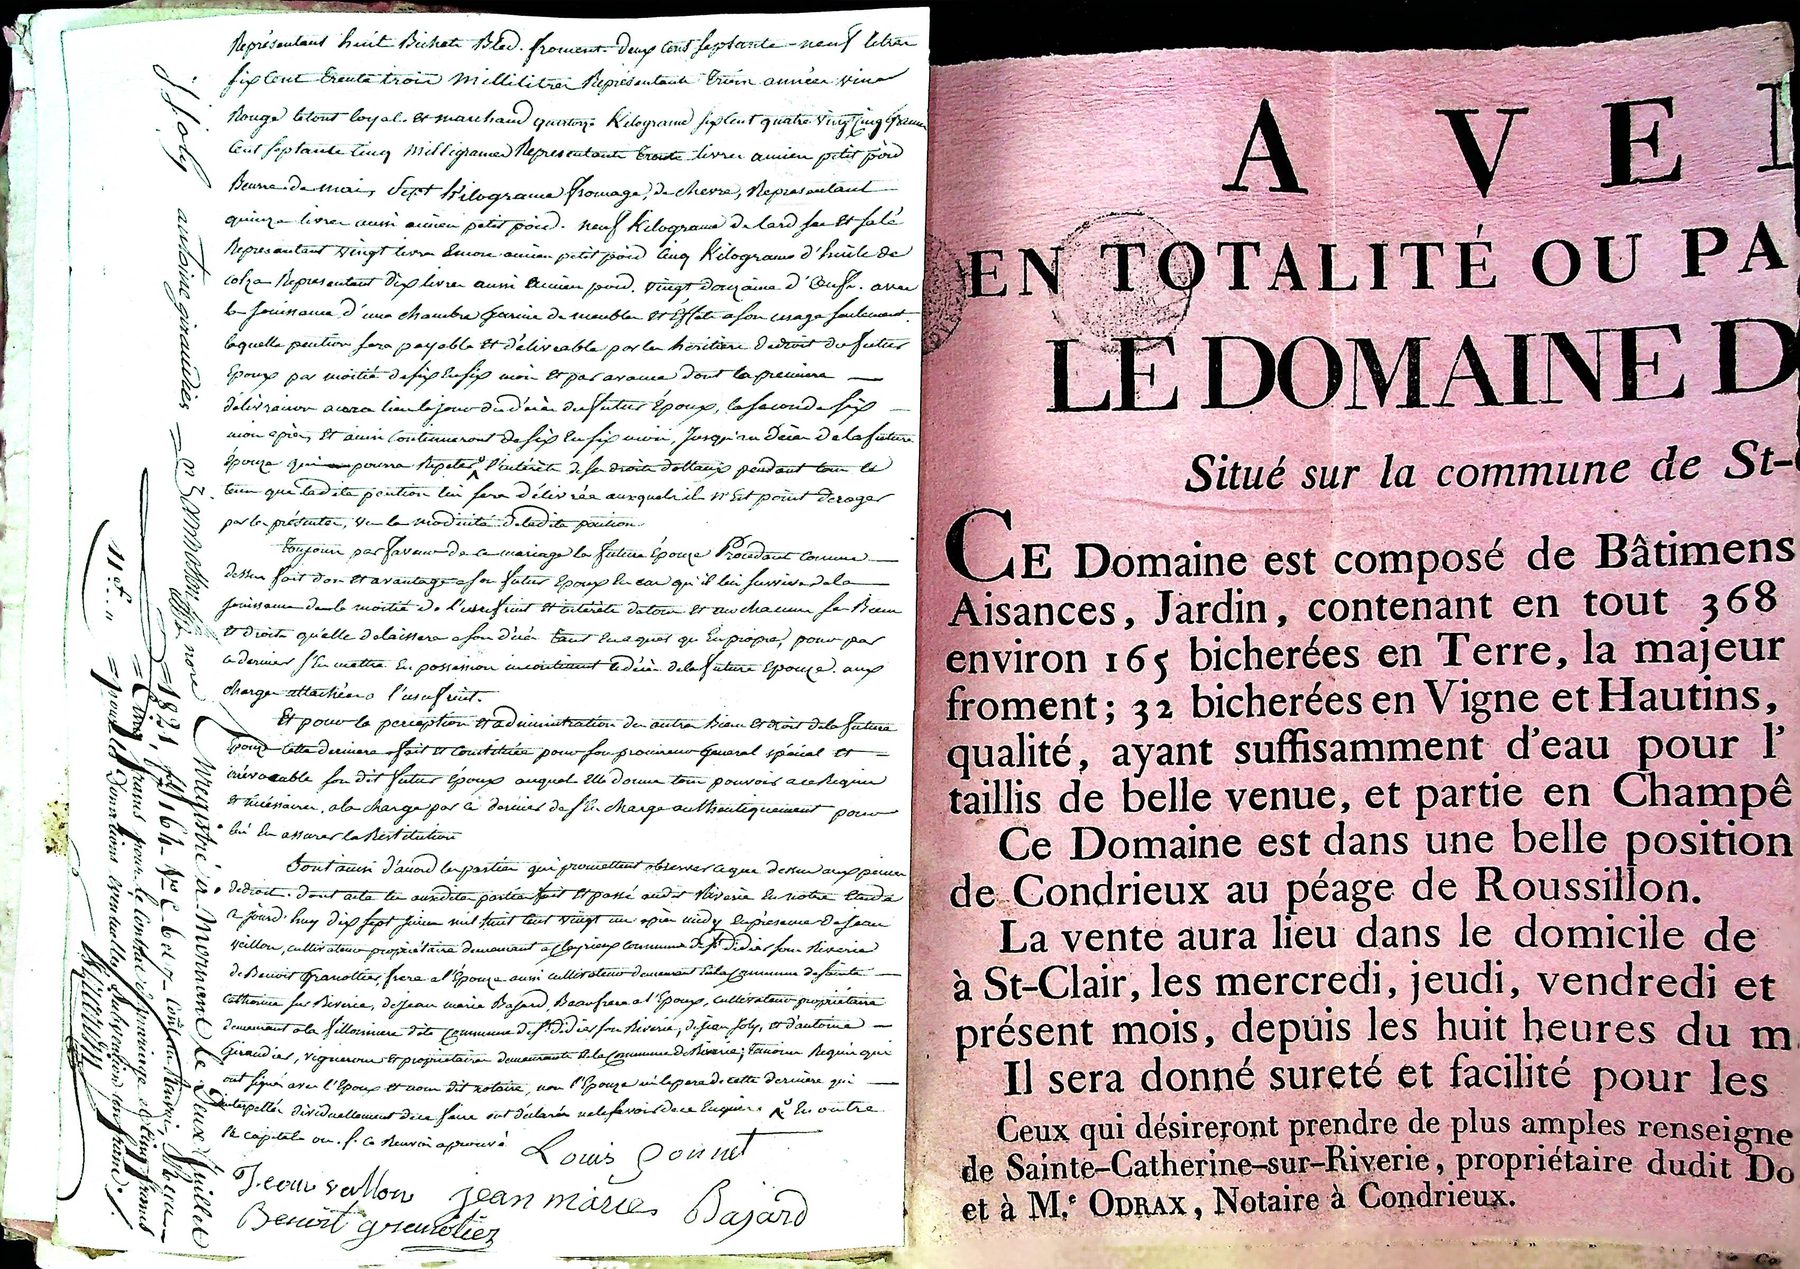 Représentant huit Bichets Bled froment deux cent septante neuf litres
six cent trente trois millilitres Représentants trois années vin
Rouge le tout loyal et marchand quatorze Kilograme six cent quatre vingt cinq grames
cent septante cinq milligrames Représentants trente livres ancien petit poid
Beurre de mai, sept Kilograme fromage de chevre, Représentant
quinze livres aussi ancien petit poid. neuf Kilograme de lard sec et salé
Représentant vingt livres Encore ancien petit poid cinq Kilograme d'huile de
colza Représentant dix livres aussi ancien poid. vingt douzaine d'Oeufs. avec
la jouissance d'une chambre garnie de meubles et Effets a son usage seulement.
laquelle pention sera payable et délivrable par les héritiers de droit du futur
Epoux par moitié de six en six mois et par avance dont la premiere
délivraison aura lieu le jour du décès du futur Epoux, la seconde six
mois après, et ainsi continueront de six en six mois, jusqu'au décès de la future
Epouze qui pourra Répéter l'intérêts de ses droits dottaux pendant tout le
tems que ladite pention lui sera délivrée auxquels il n'Est point déroger
par les présentes, vu la modicité de ladite pention.
Toujours par faveur de ce mariage la future Epouze Procédant comme
dessus fait don et avantage a son futur Epoux En cas qu'il lui survive de la
jouissance de la moitié de l'usufruit et intérêts de tous et un chacun ses Biens
et droits quelle délaissera a son décès tant En acquis qu'En propres, pour par
ce dernier s'En mettre En possession incontinent le décès de la future Epouze aux
charges attachées a l'usufruit.
Et pour la perception et administration des autres biens et droits de la future
Epouze cette derniere fait et constituée pour son procureur Général spécial et
irrévocable son dit futur Epoux auquel Elle donne tous pouvoirs a ce Requis
et nécéssaires, a la charge par ce dernier de s'En charger authentiquement pour
lui En assurer la Restitution
Dont ainsi d'accord les parties qui promettent observer ce que dessus aux peines
de droit. dont acte les susdites parties fait et passé audit Riverie En notre Etude
ce jourd'huy dix sept juin mil huit cent vingt un après midy En présence de Jean
veillon, cultivateur propriétaire demeurant a commune de St Didier sous Riverie
de Benoit Granottier, frere a l'Epouze aussi cultivateur demeurant En la Commune de Sainte
Catherine sur Riverie, de Jean marie Bajard Beaufrere a l'Epoux, cultivateur propriétaire
demeurant a la dite Commune de St Didier sous Riverie, de Jean Joly, et d'antoine
Giraudier, vignerons et propriétaires demeurants En la commune de Riverie, témoins Requis qui
ont signés avec l'Epoux et nous dit notaire, non l'Epouze ni le pere de cette derniere qui
interpellés dividuellement de ce faire ont déclarés ne le savoir de ce Enquis. En outre
le capital ou f. Ce Renvoi approuvé
Louis Gonnet
Jean vallon
jean marie Bajard
Benoit grenotier
J Joly
antoine giraudier
notre
Enregistré à Mornant le Deux Juillet
1821 fo 161
pour le Contrat de mariage
A V E
EN TOTALITÉ OU PA
LE DOMAINE D
Situé sur la commune de St-
CE Domaine est composé de Bâtimens
Aisances, Jardin, contenant en tout 368
environ 165 bicherées en Terre, la majeur
froment ; 32 bicherées en Vigne et Hautins,
qualité, ayant suffisamment d'eau pour l'
taillis de belle venue, et partie en Champê
Ce Domaine est dans une belle position
de Condrieux au péage de Roussillon.
La vente aura lieu dans le domicile de
à St-Clair, les mercredi, jeudi, vendredi et
présent mois, depuis les huit heures du m
Il sera donné sureté et facilité pour les
Ceux qui désireront prendre de plus amples renseigne
de Sainte-Catherine-sur-Riverie, propriétaire dudit Do
et à M.e ODRAX, Notaire à Condrieux.